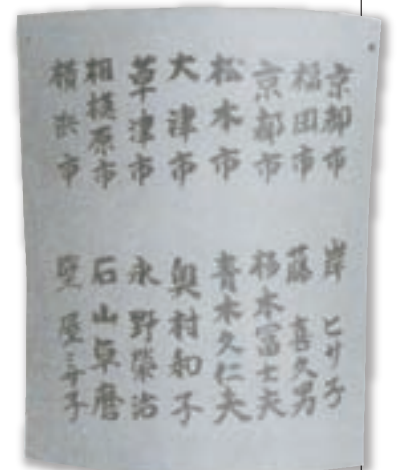 京都市 岸 ヒサ子
福田市 藤 喜久男
京都市 杉本冨士夫
松本市 青木久仁夫
大津市 奥村和子
草津市 永野榮治
相模原市 石山卓磨
横浜市